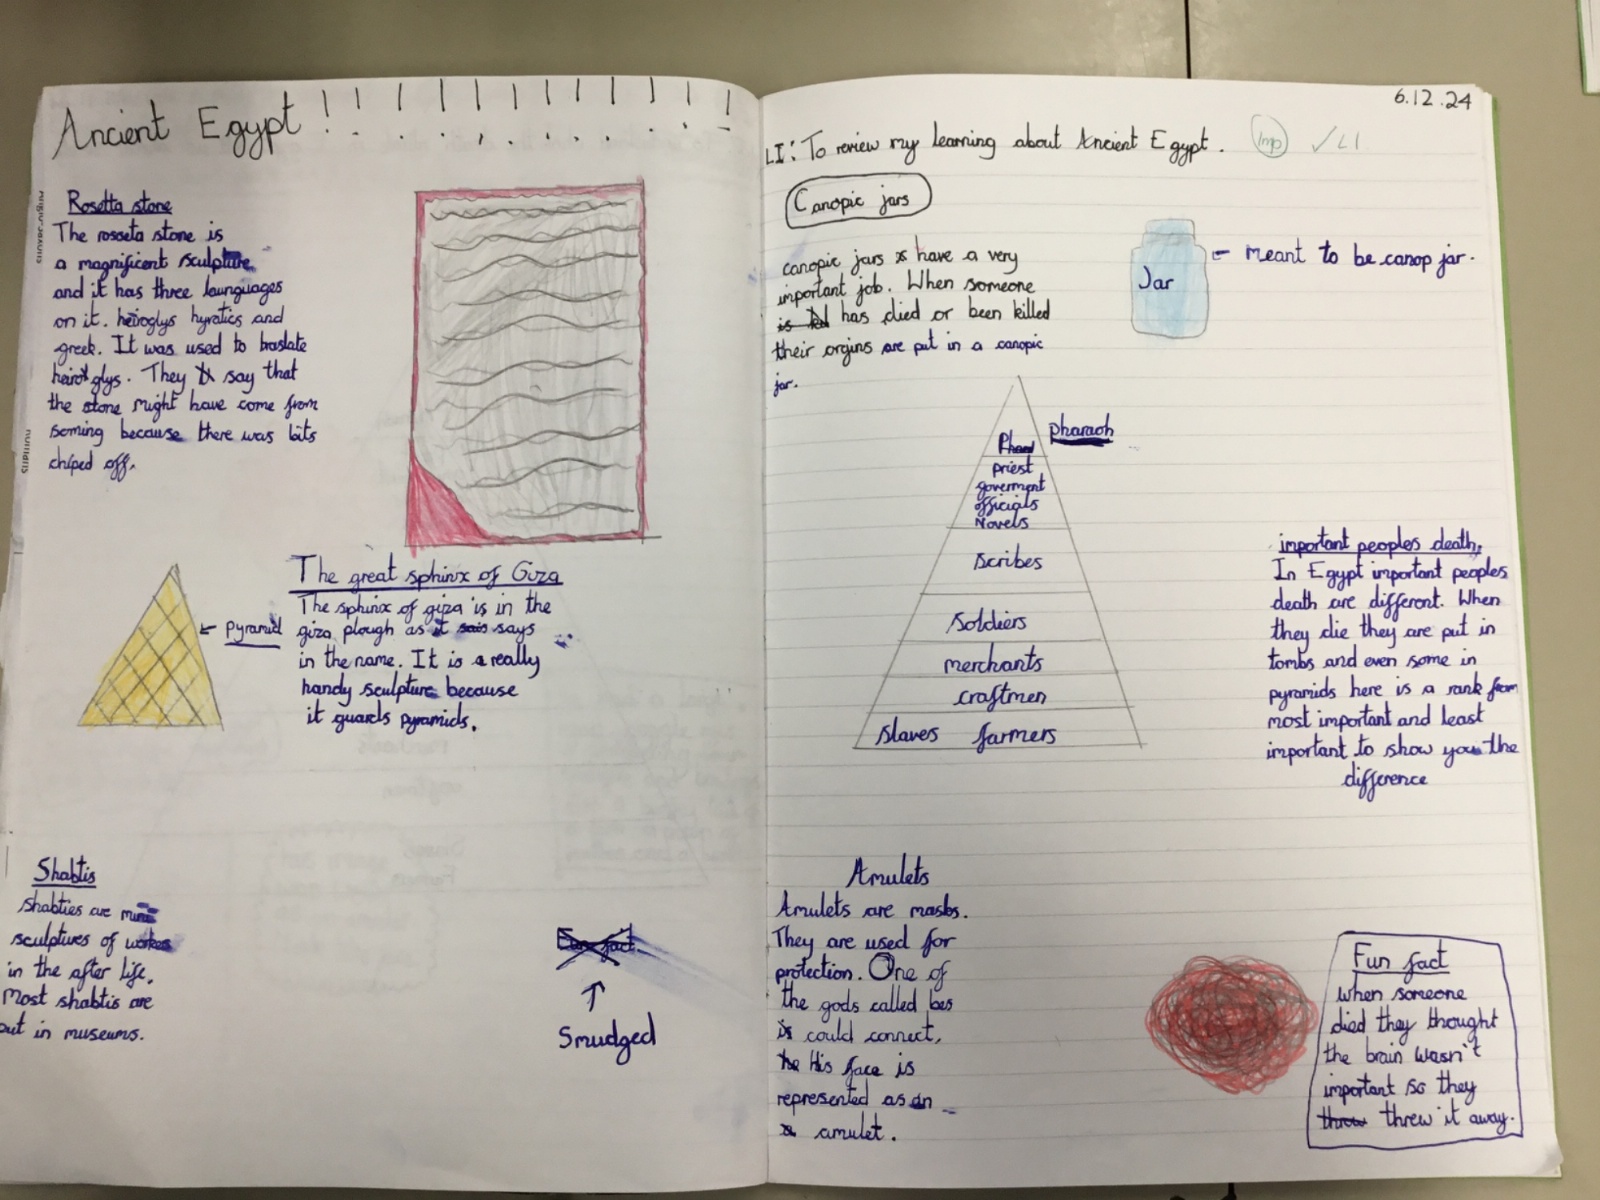 Ancient Egypt ! ! ! ! ! ! ! ! ! ! ! !
Rosetta stone
The rosseta stone is
a magnificent sculpture
and it has three launguages
on it. heiroglys hyratics and
greek. It was used to traslate
heiroglys. They say that
the stone might have come from
soming because there was bits
chiped off.
The great sphinx of Giza
The sphinx of giza is in the
giza plough as it says
in the name. It is a really
handy sculpture because
it guards pyramids.
pyramid
Shabtis
shabties are mini
sculptures of workes
in the after life.
Most shabtis are
put in museums.
Fun fact
Smudged
6.12.24
LI: To review my learning about Ancient Egypt. Imp ✓LI
Canopic jars
canopic jars have a very
important job. When someone
has died or been killed
their orgins are put in a canopic
jar.
Jar
meant to be canop jar.
pharaoh
priest
goverment
officials
Novels
scribes
soldiers
merchants
craftmen
slaves farmers
important peoples death,
In Egypt important peoples
death are different. When
they die they are put in
tombs and even some in
pyramids here is a rank from
most important and least
important to show you the
difference
Amulets
Amulets are masks.
They are used for
protection. One of
the gods called bes
could connect,
His face is
represented as an
amulet.
Fun fact
when someone
died they thought
the brain wasn't
important so they
threw it away.